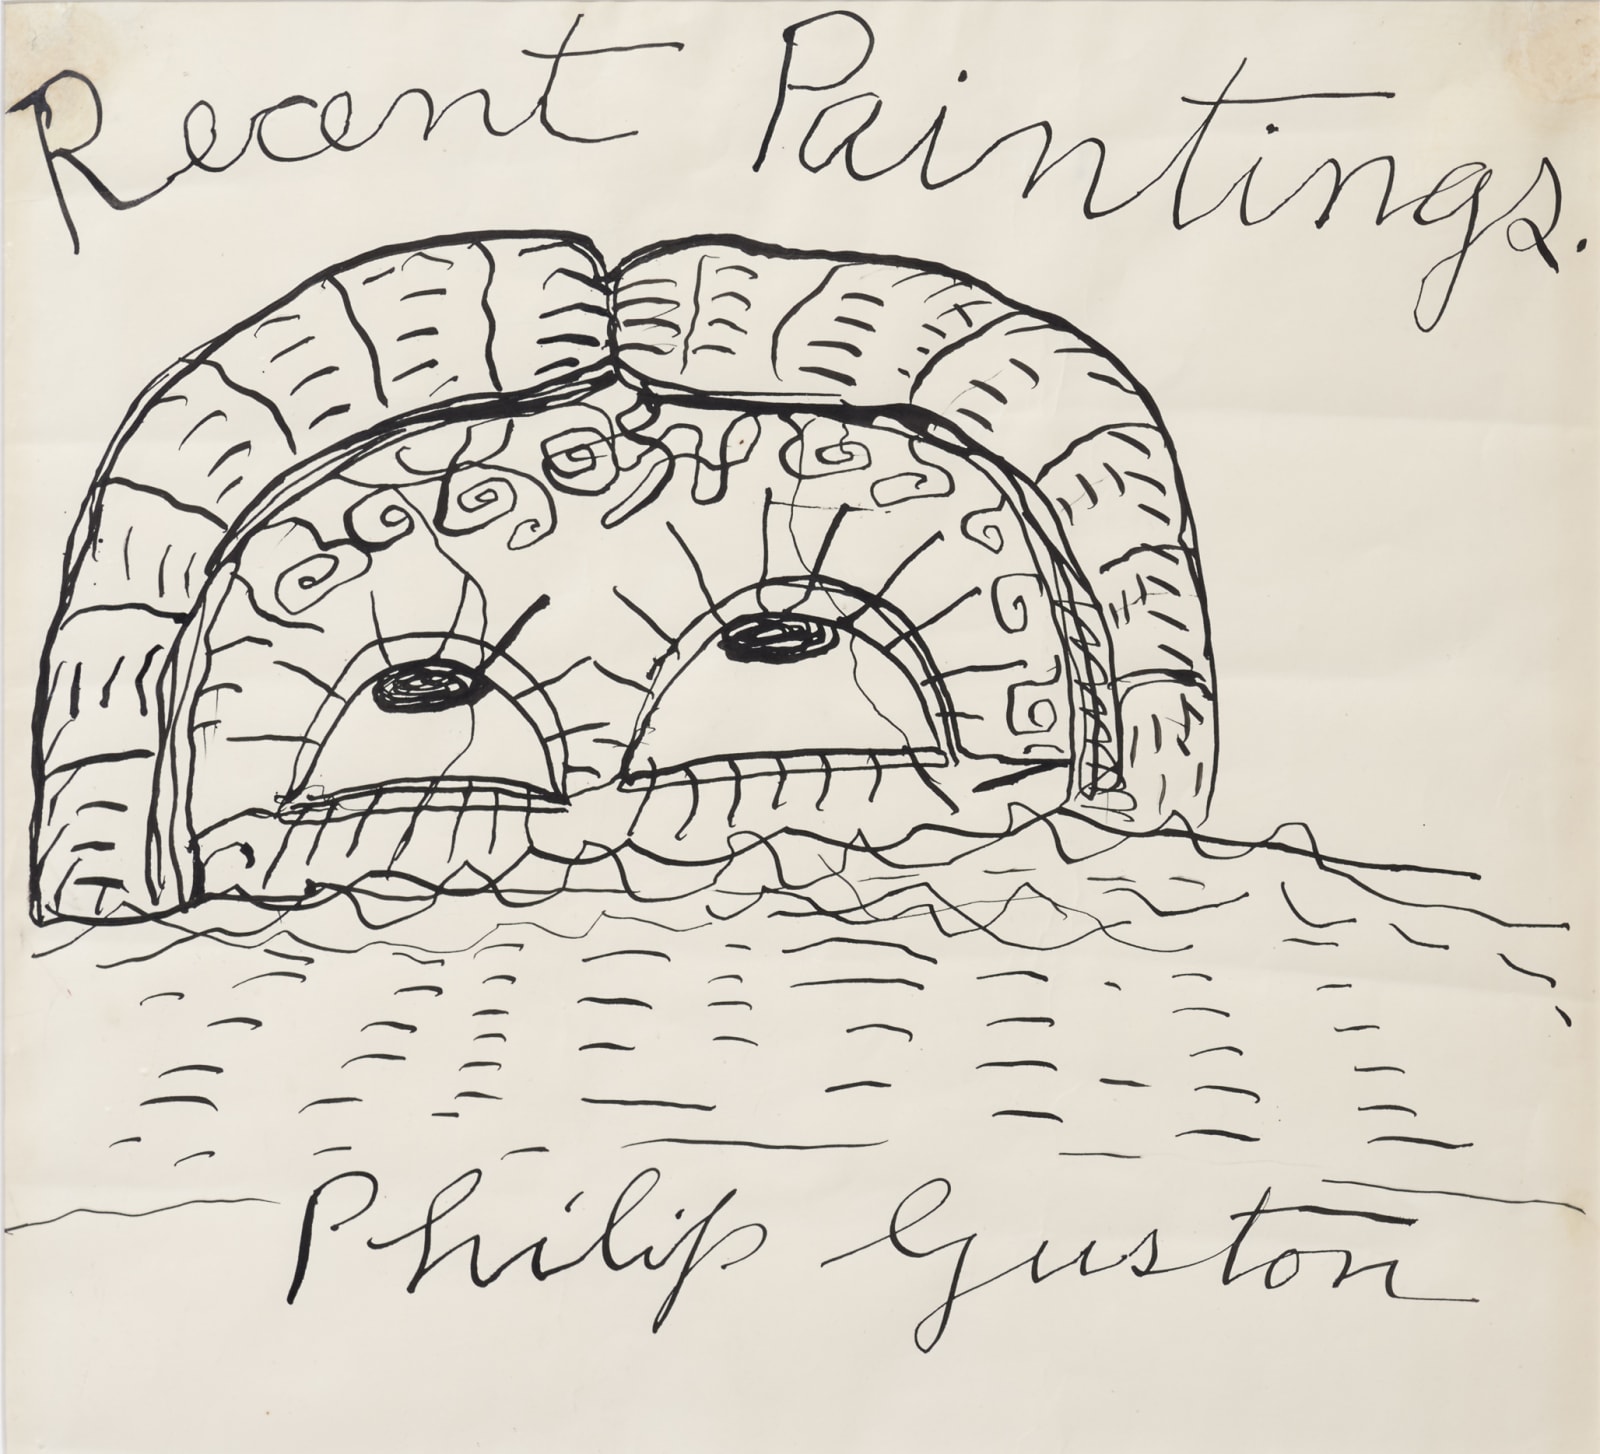 Recent Paintings.
Philip Guston